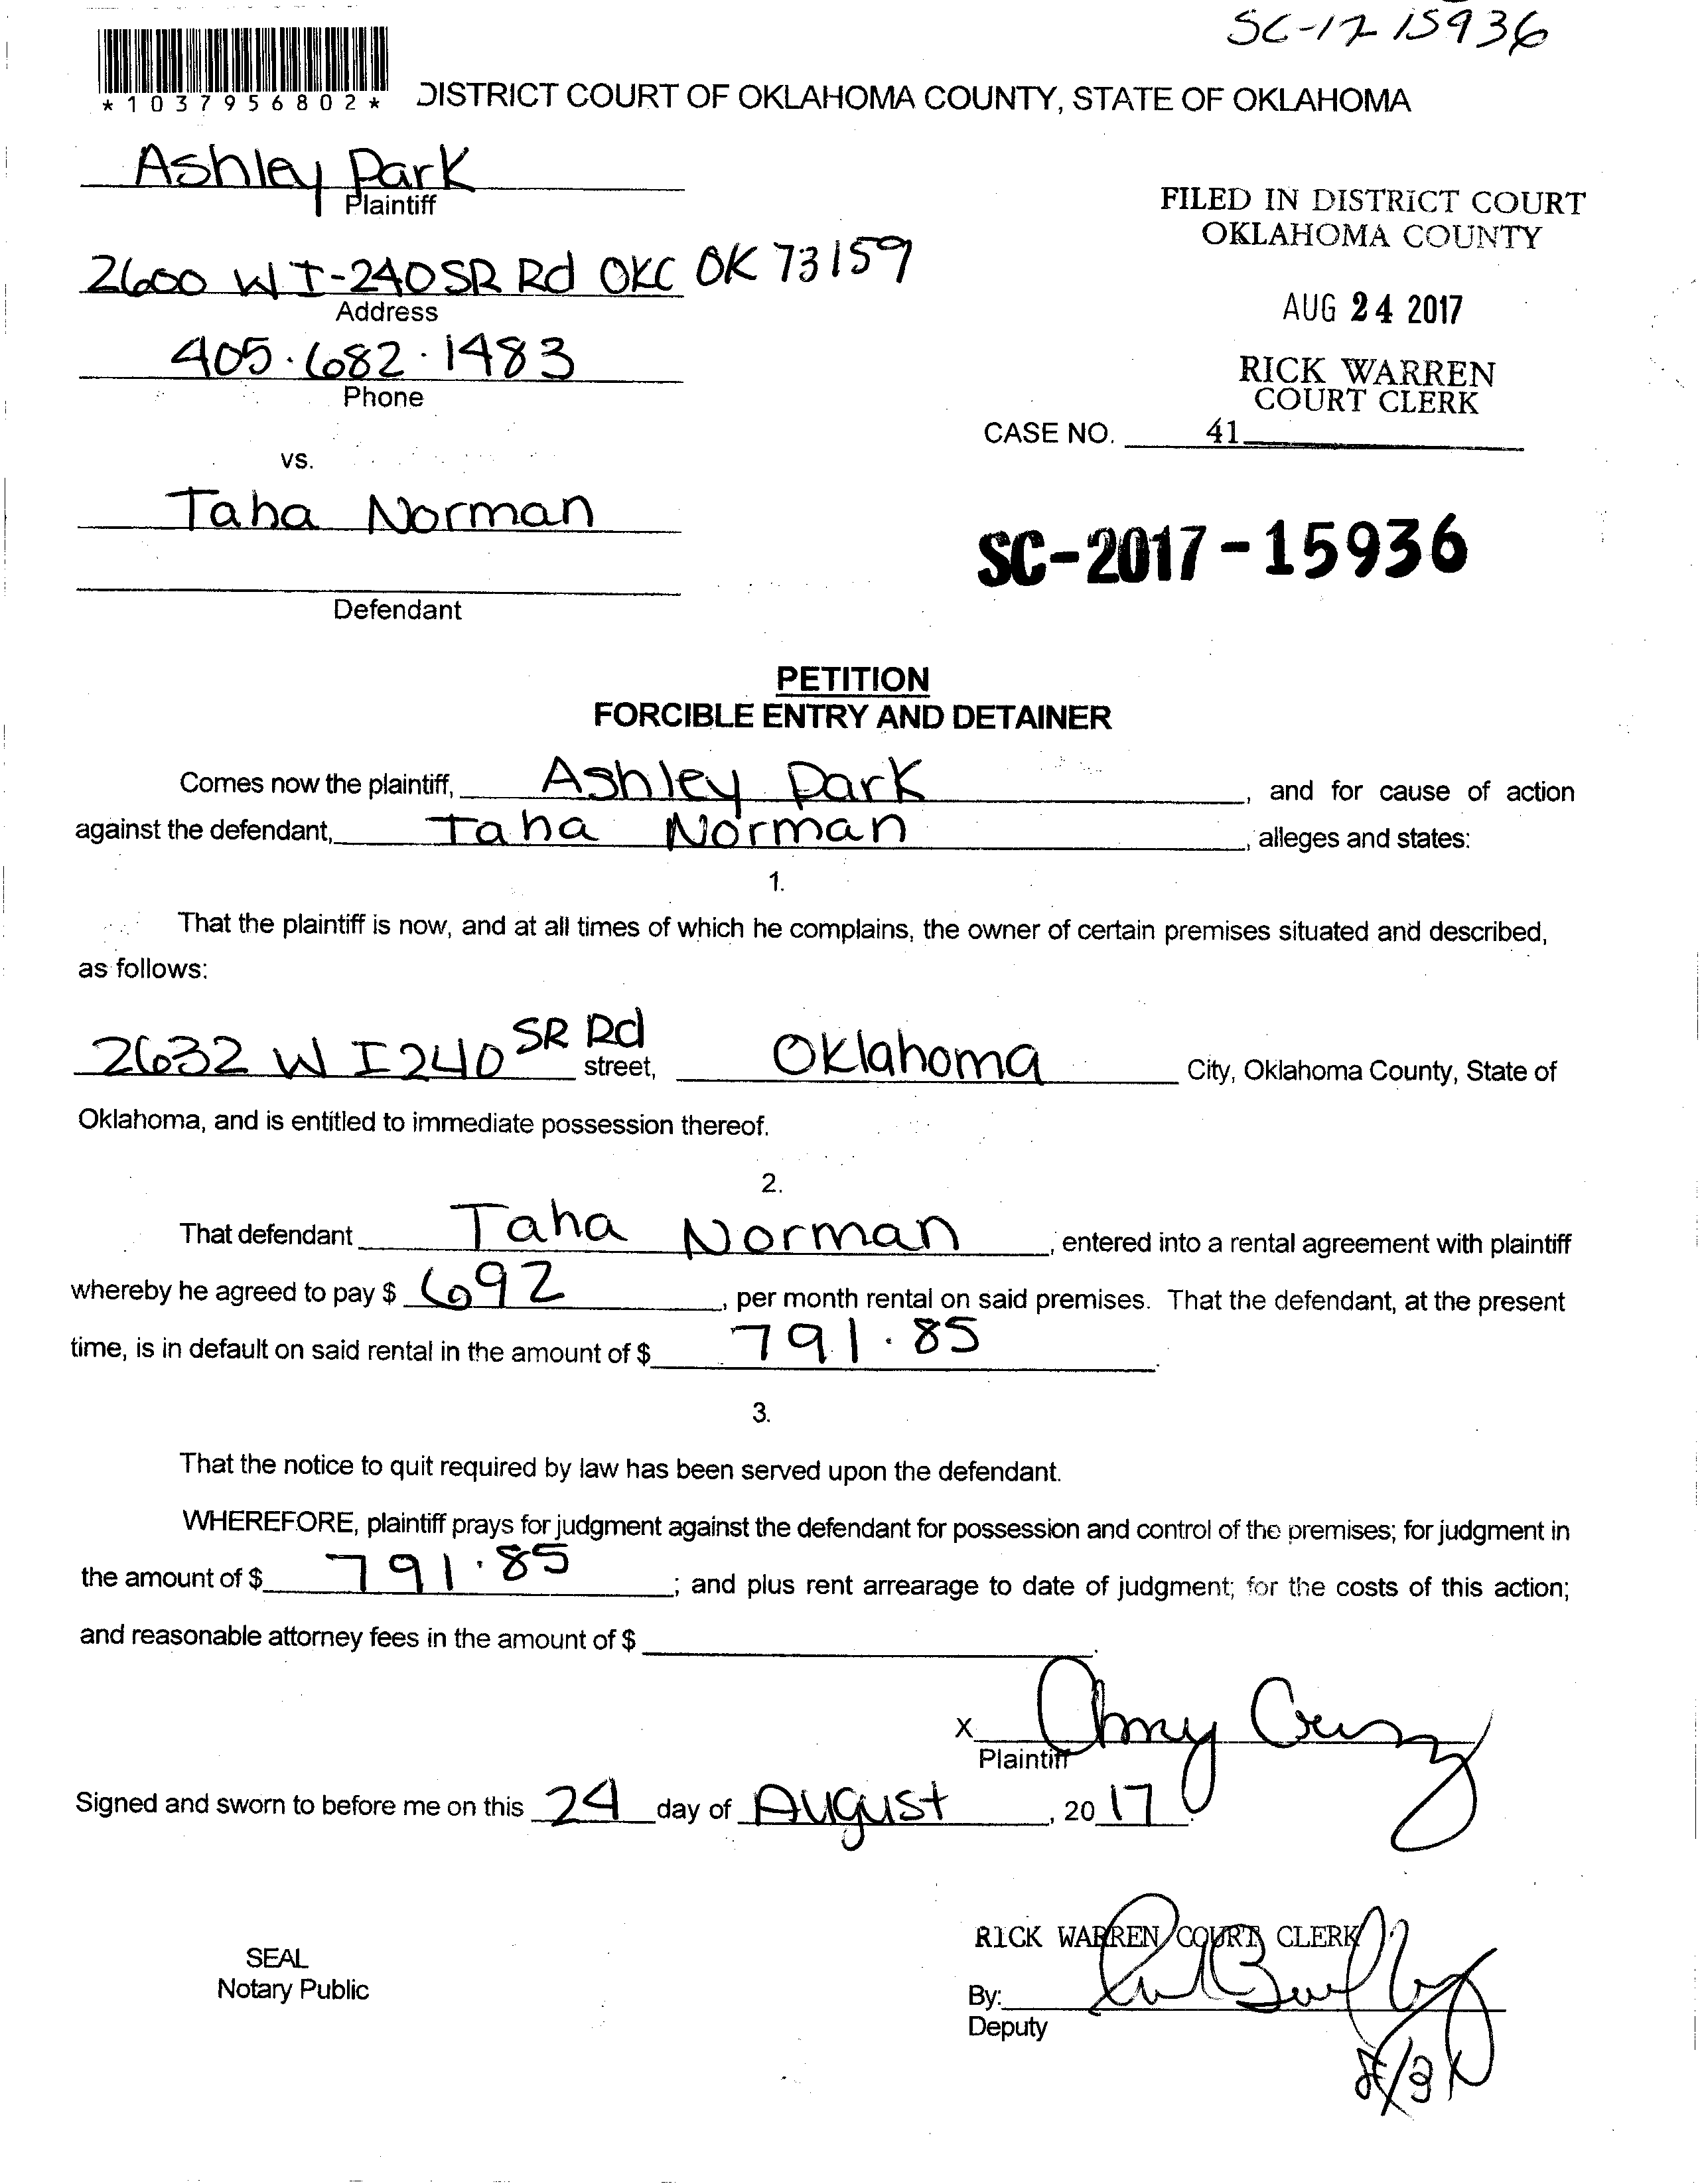 SC-17 15936
*1037956802*
DISTRICT COURT OF OKLAHOMA COUNTY, STATE OF OKLAHOMA
Ashley Park
Plaintiff
FILED IN DISTRICT COURT
OKLAHOMA COUNTY
2600 W I-240 SR Rd OKC OK 73159
Address
AUG 24 2017
405.682.1483
Phone
RICK WARREN
COURT CLERK
CASE NO. 41
vs.
Taha Norman
SC-2017-15936
Defendant
PETITION
FORCIBLE ENTRY AND DETAINER
Comes now the plaintiff, Ashley Park, and for cause of action
against the defendant, Taha Norman, alleges and states:
1.
That the plaintiff is now, and at all times of which he complains, the owner of certain premises situated and described,
as follows:
2632 W I240 SR Rd street, Oklahoma City, Oklahoma County, State of
Oklahoma, and is entitled to immediate possession thereof.
2.
That defendant Taha Norman, entered into a rental agreement with plaintiff
whereby he agreed to pay $ 692, per month rental on said premises. That the defendant, at the present
time, is in default on said rental in the amount of $ 791.85.
3.
That the notice to quit required by law has been served upon the defendant.
WHEREFORE, plaintiff prays for judgment against the defendant for possession and control of the premises; for judgment in
the amount of $ 791.85; and plus rent arrearage to date of judgment; for the costs of this action;
and reasonable attorney fees in the amount of $ .
X
Plaintiff
Signed and sworn to before me on this 24 day of August, 2017.
RICK WARREN COURT CLERK
SEAL
Notary Public
By:
Deputy